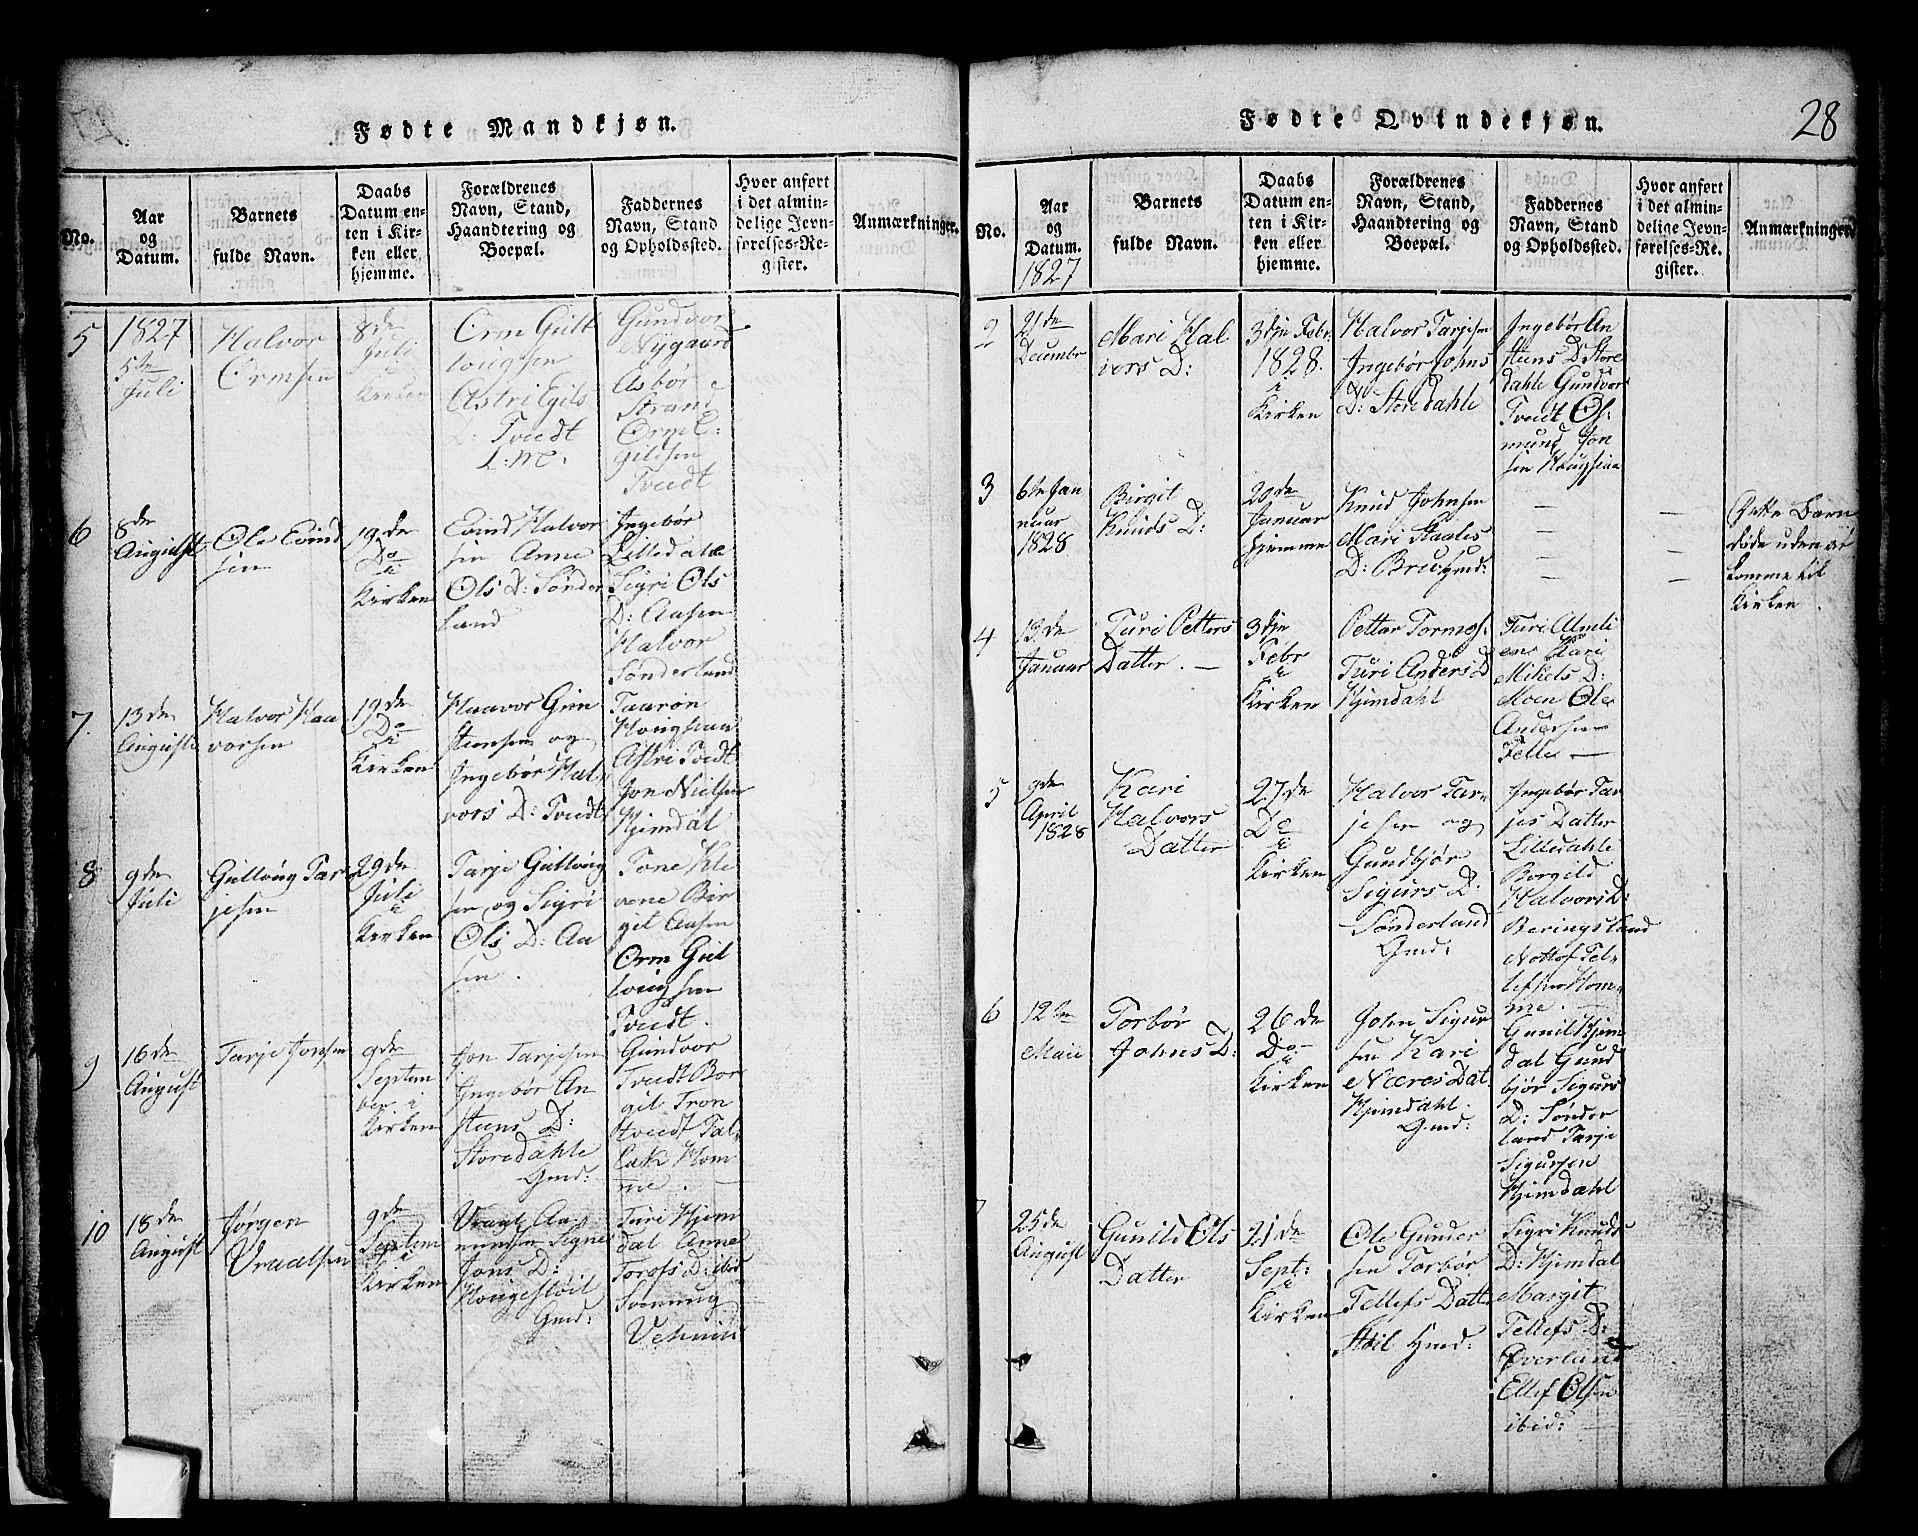 Fødte Mandkjøn.
No.
Aar
og
Datum.
Barnets
fulde Navn.
Daabs
Datum en-
ten i Kir-
ken eller
hjemme.
Forældrenes
Navn, Stand,
Haandtering og
Boepæl.
Faddernes
Navn, Stand
og Opholdssted.
Hvor anført
i det almin-
delige Jevn-
førelses-Re-
gister.
Anmærkninger.
5
1827
5te
Juli
Halvor
Ormsen
8de
Juli
i
Kirken
Orm Gull
Astri Egils
D: Tvedt
Gundvor
Nygaard
Asbør
Strand
Tvedt
6
8de
August
Ole Evind
sen
19de
Do
i
Kirken
Evind Halvor
sen Anne
Ols D: Sønder
land
Ingebør
Lilledale
Sigri Ols
D: Aasen
Halvor
Sønderland
7.
13de
August
Halvor Haa
vorsen
19de
Do
i
Kirken
Haavor Gun
stensen og
Ingebør Hal
vors D: Tvedt
Taarøn
Astri Tvedt
Jon Nielsen
Hjemdal
8
9de
Juli
Gullong Tar
jesen
29de
Juli
i
Kirken
Tarje Gullong
sen og Sigri
Ols D: Aa
sen.
Tone Kle
vene Bir
git Aasen
Orm Gul
longsen
Tvedt.
9
16de
August
Tarje Jonsen
9de
Septem
ber i
Kirken
Jon Tarjesen
Ingebør An
stens D:
Storedahle
Gmd:
Gundvor
Tvedt Bor
gil Tron
tvedt Tal-
lak Hom
me.
10
18de
August
Jørgen
Vraalsen
9de
Septem
i
Kirken
mundsen Signe
Jons D:
Gmd:
Turi Hjem
dal Anne
Torofs D: ibid
28
Fødte Qvindekjøn.
No.
Aar
og
Datum.
1827
Barnets
fulde Navn.
Daabs
Datum en-
ten i Kir-
ken eller
hjemme.
Forældrenes
Navn, Stand,
Haandtering og
Boepæl.
Faddernes
Navn, Stand
og Opholdssted.
Hvor anført
i det almin-
delige Jevn-
førelses-Re-
gister.
Anmærkninger.
2
21de
Decembr
Mari Hal
vors D:
3dje Febr
1828.
i
Kirken
Halvor Tarjesen
Ingebør Johns
D: Storedahle
Ingebør An
stens D Store
dahle Gundvor
Tvedt Os
mund Jon
sen
3
6te Jan
nuar
1828
Birgit
Knuds D:
20de
Januar
hjemme
Knud Johnsen
Mari Staales
Dette Barn
døde uden at
komme til
Kirken.
4
13de
Januar
Turi Petters
Datter. —
3dje
Febr
i
Kirken
Petter Tormos.
Turi Anders D
Hjemdahl
Kari
Mikels D:
Moen Ole
Andersen
5
9de
April
1828
Kari
Halvors
Datter
27de
Do
i
Kirken
Halvor Tar-
jesen og
Gundbjør
Sigurs D:
Sønderland
Gmd:
Ingebør Tar
jes Datter
Lilledahle
Borgild
Halvors D:
Beringsland
Notlof Tel-
lefsen Hom-
me.
6
12te
Maii
Torbør
Johns D:
26de
Do
i
Kirken
John Sigur
sen Kari
Næres Dat
Hjemdahl.
Gmd:
Gunil Hjem
dal Gund
bjør Sigurs
D: Sønder
land Tarje
Sigursen
Hjemdahl
7
25de
August
Gunild Ols
Datter
21de
Sept:
i
Kirken
Ole Gunder
sen Torbør
Tellefs Datt
Støil Gmd:
Sigri Knuds
D: Hjemdal
Margit
Tellefs D:
Øverland
Ellef Olsen
ibid: —